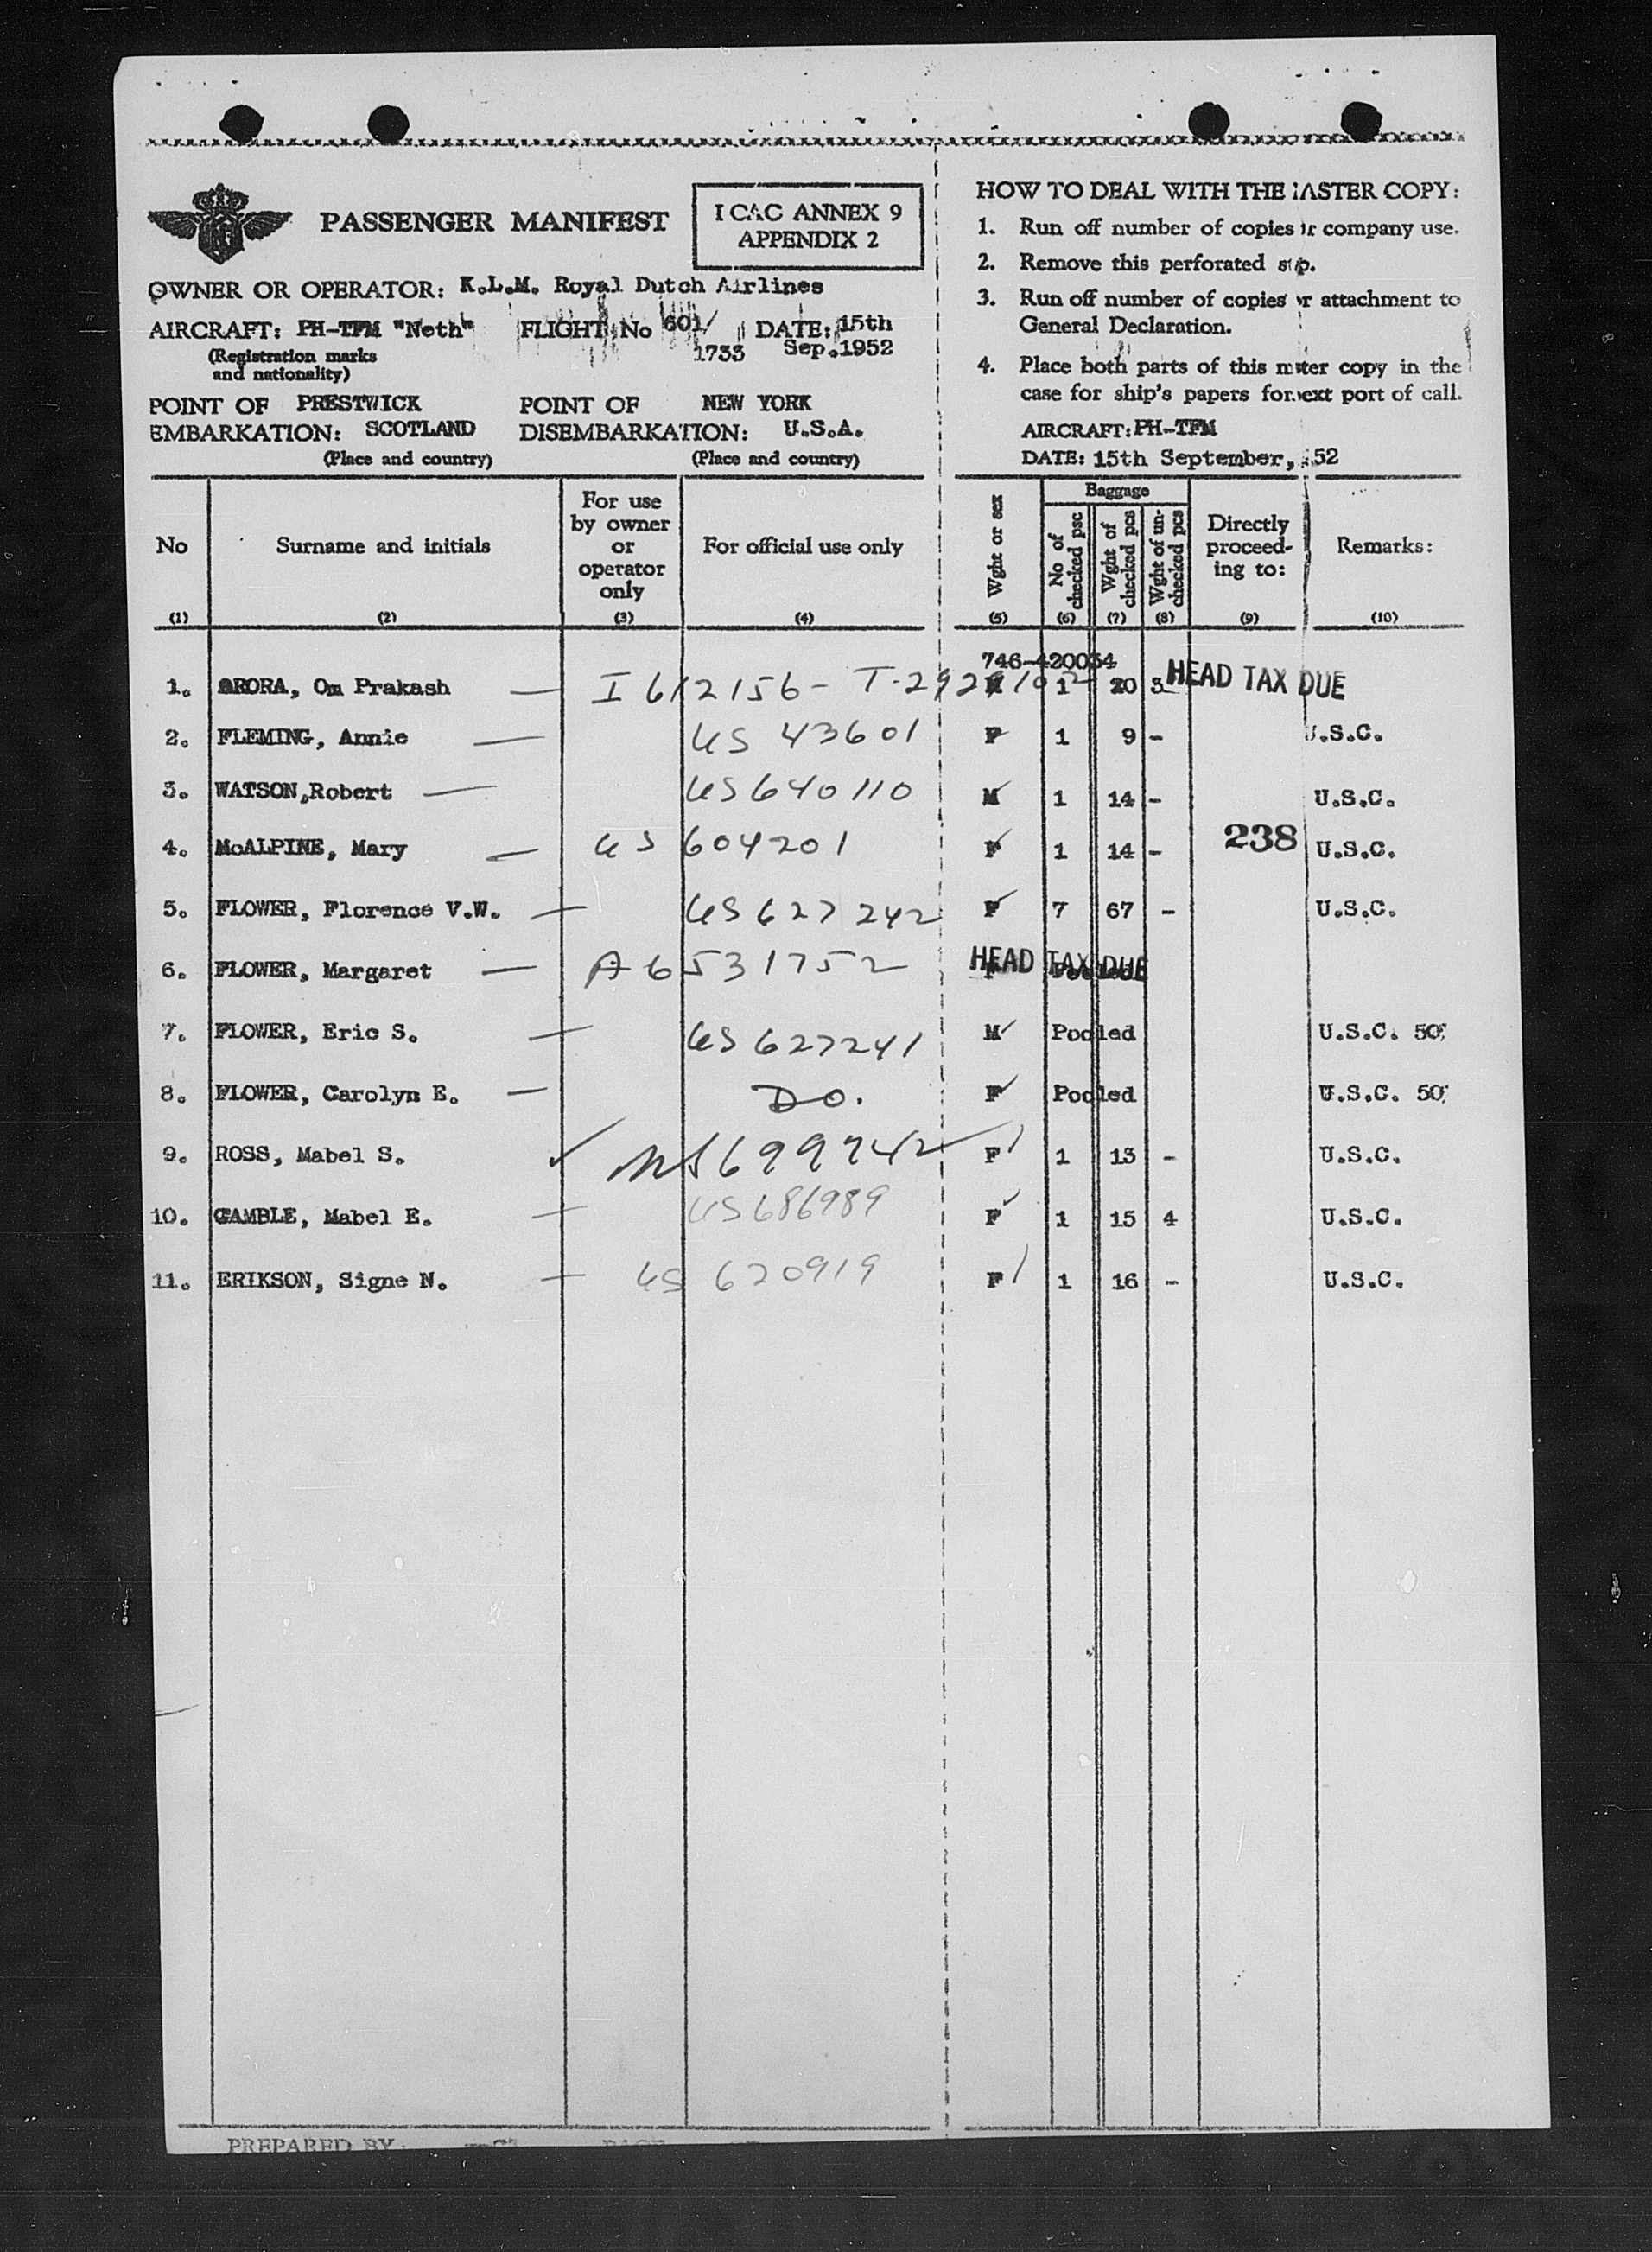 PASSENGER MANIFEST
I CAC ANNEX 9
APPENDIX 2
OWNER OR OPERATOR: K.L.M. Royal Dutch Airlines
AIRCRAFT: PH-TFM "Neth" FLIGHT No 601/1733 DATE: 15th Sep. 1952
(Registration marks
and nationality)
POINT OF EMBARKATION: PRESTWICK SCOTLAND
(Place and country)
POINT OF DISEMBARKATION: NEW YORK U.S.A.
(Place and country)
HOW TO DEAL WITH THE MASTER COPY:
1. Run off number of copies company use.
2. Remove this perforated
3. Run off number of copies attachment to
General Declaration.
4. Place both parts of this copy in the
case for ship's papers for next port of call.
AIRCRAFT: PH-TFM
DATE: 15th September, 52
No
(1)
Surname and initials
(2)
For use
by owner
or
operator
only
(3)
For official use only
(4)
Wght or sex
(5)
Baggage
No of
checked psc
(6)
Wght of
checked pcs
(7)
Wght of un-
checked pcs
(8)
Directly
proceed-
ing to:
(9)
Remarks:
(10)
746-420034
1. ARORA, Om Prakash — I 612156 - 1 20 3 HEAD TAX DUE
2. FLEMING, Annie — US 43601 F 1 9 - U.S.C.
3. WATSON, Robert — US 640110 M 1 14 - U.S.C.
4. McALPINE, Mary — US 604201 F 1 14 - 238 U.S.C.
5. FLOWER, Florence V.W. — US 627242 F 7 67 - U.S.C.
6. FLOWER, Margaret — A6531752 F Pooled HEAD TAX DUE
7. FLOWER, Eric S. — US 627241 M Pooled U.S.C. 50
8. FLOWER, Carolyn E. — Do. F Pooled U.S.C. 50
9. ROSS, Mabel S. US 699742 F 1 13 - U.S.C.
10. GAMBLE, Mabel E. — US 686989 F 1 15 4 U.S.C.
11. ERIKSON, Signe N. — US 620919 F 1 16 - U.S.C.
PREPARED BY: